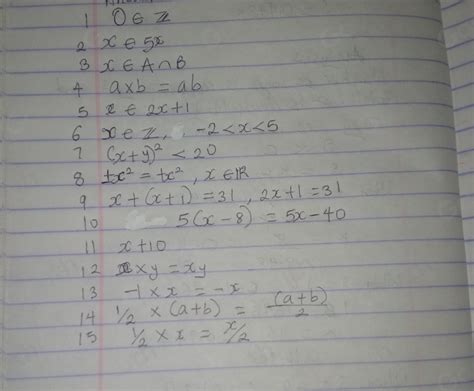 1 0 ∈ ℤ
2 x ∈ 5x
3 x ∈ A ∩ B
4 a x b = ab
5 x ∈ 2x+1
6 x ∈ ℤ, -2 < x < 5
7 (x+y)² < 20
8 +x² = +x², x ∈ ℝ
9 x + (x+1) = 31, 2x+1 = 31
10 5(x-8) = 5x-40
11 x+10
12 x × y = xy
13 -1 × x = -x
14 1/2 × (a+b) = (a+b)/2
15 1/2 × x = x/2